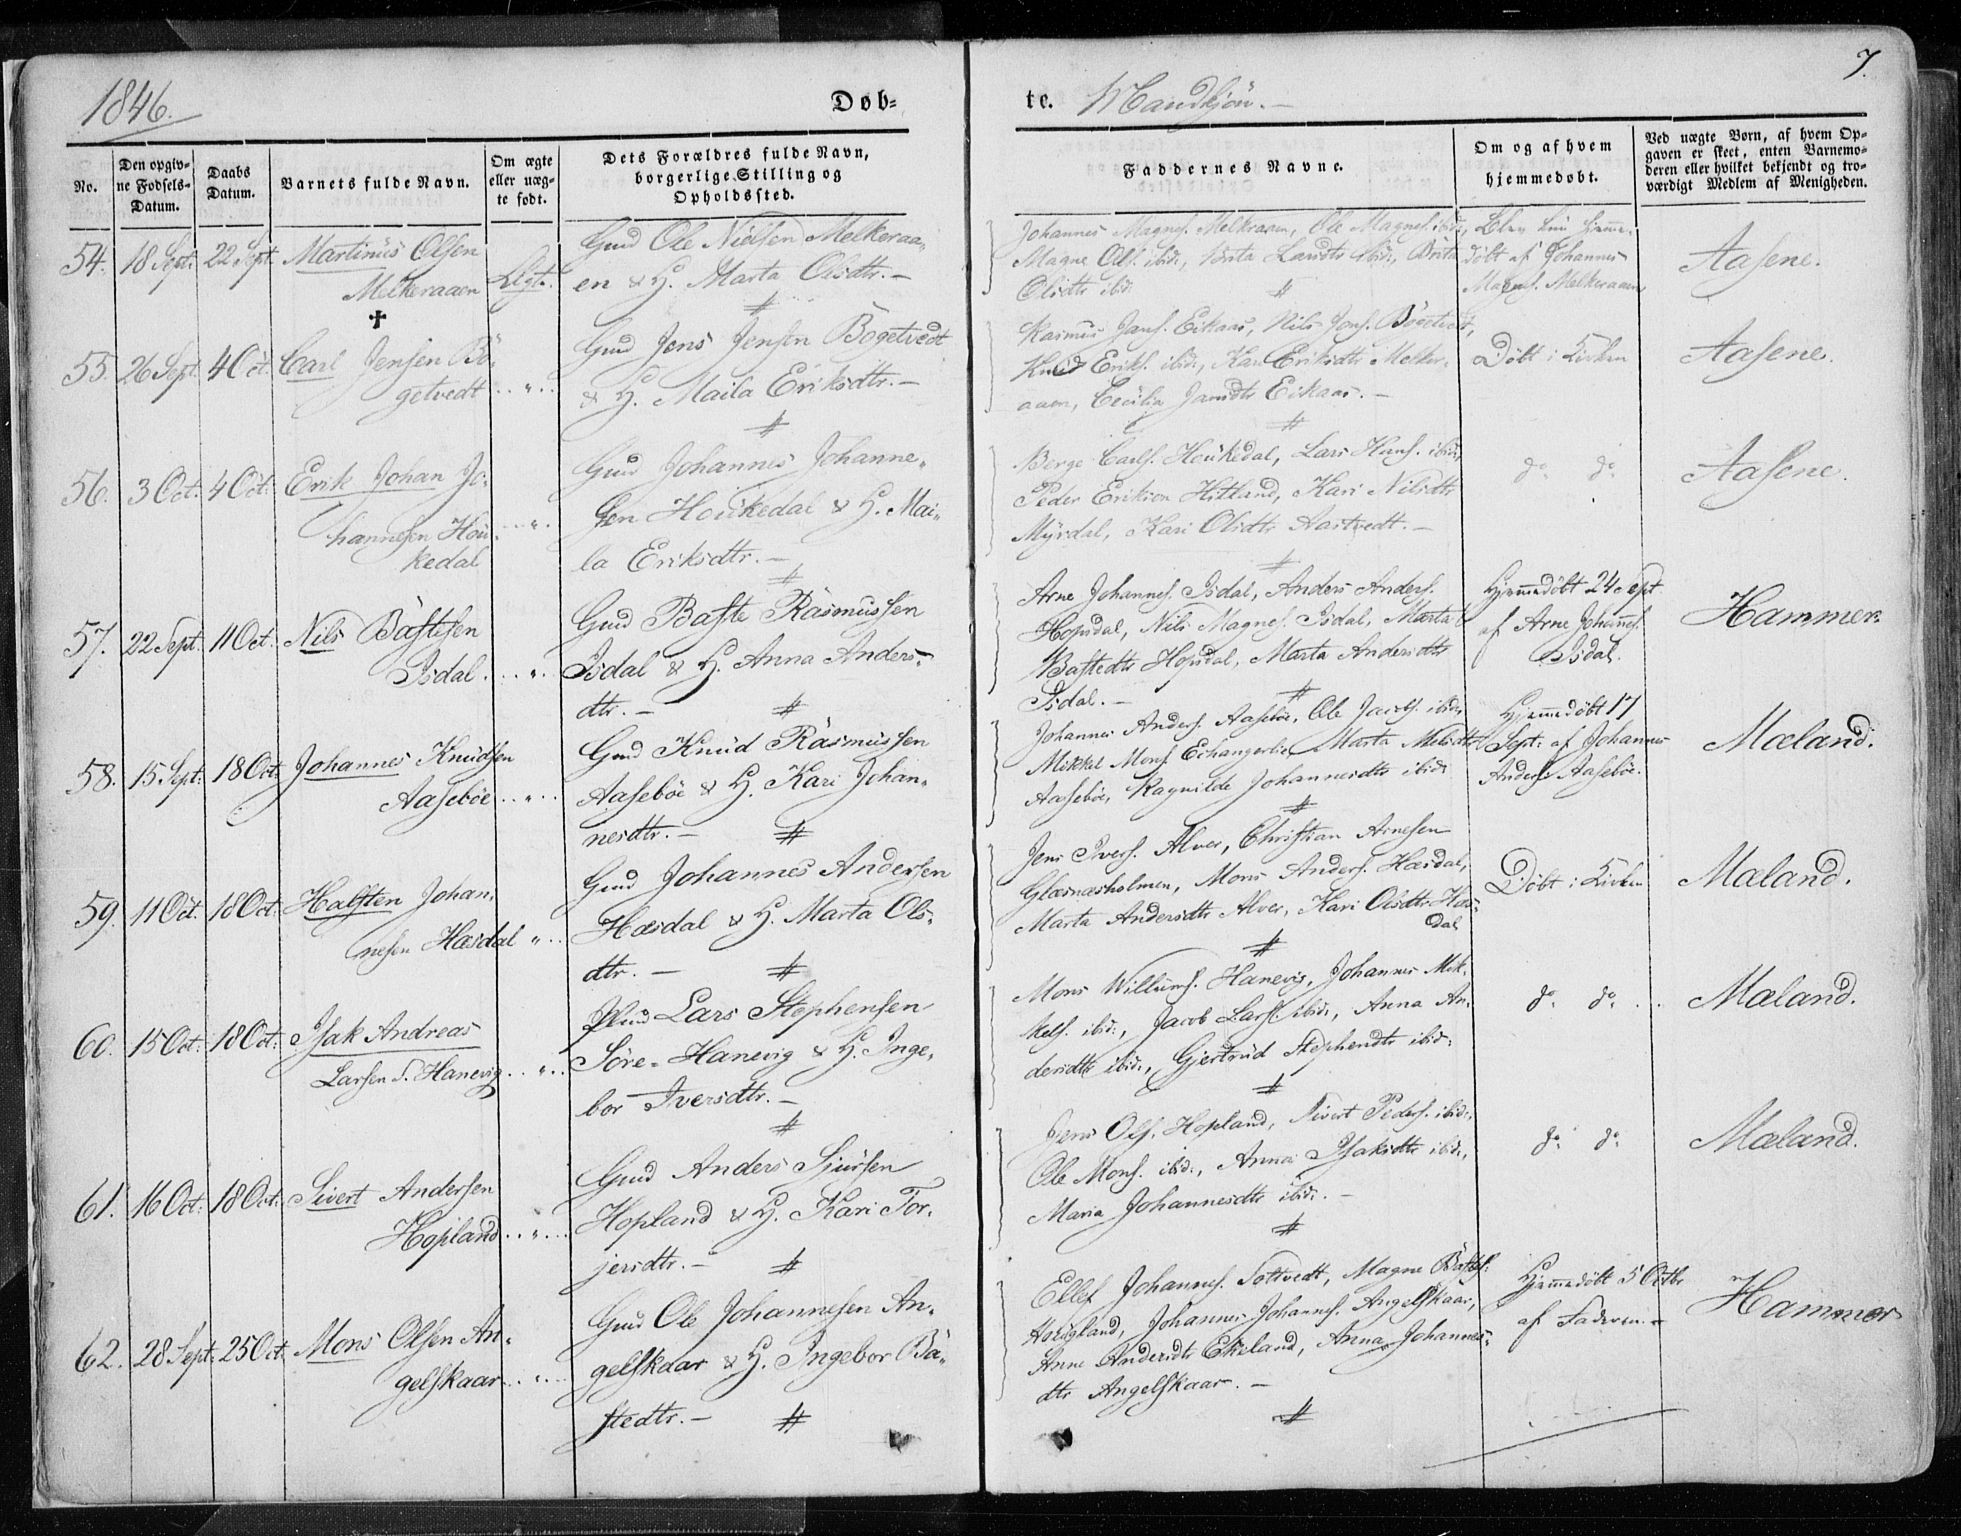 1846.
Døb-
te. Mandkjön.
7.
No.
Den opgiv-
ne Fødsels-
Datum.
Daabs
Datum.
Barnets fulde Navn.
Om ægte
eller uæg-
te født.
Dets Forældres fulde Navn,
borgerlige Stilling og
Opholdssted.
Faddernes Navne.
Om og af hvem
hjemmedøbt.
Ved uægte Børn, af hvem Op-
gaven er skeet, enten Barnemo-
deren eller hvilket bekjendt og tro-
værdigt Medlem af Menigheden.
54. 18 Sept. 22 Sept. Martinus Olsen
Melkeraaen
Gmd Ole Nielsen Melkeraa-
en & H. Marta Olsdtr.
Johannes Magnes. Melkraaen, Ole Magnes. ibid.,
Magne Ols. ibid., Brita Larsdtr ibid., Brita
Olsdtr ibid.
döbt af Johannes
Magnes. Melkeraaen
Aasene.
55. 26 Sept. 4 Oct. Carl Jensen Bö-
getvedt
Gmd Jens Jensen Bögetvedt
& H. Maila Eriksdtr.
Rasmus Jans. Eikaas, Nils Jons. Bögetvedt,
Knud Eriks. ibid., Kari Eriksdtr Melker-
aaen, Cecilia Jansdtr Eikaas.
Döbt i Kirken
Aasene.
56. 3 Oct. 4 Oct. Erik Johan Jo-
hannesen Hou-
kedal
Gmd Johannes Johanne-
sen Houkedal & H. Mai-
la Eriksdtr.
Berge Carls. Houkedal, Lars Hans. ibid.,
Peder Erikson Hitland, Kari Nilsdtr
Myrdal, Kari Olsdtr Aastvedt.
do do
Aasene.
57. 22 Sept. 11 Oct. Nils Bastesen
Isdal
Gmd Baste Rasmussen
Isdal & H. Anna Anders-
dtr.
Arne Johannes. Isdal, Anders Anders.
Hopsdal, Nils Magnes. Isdal, Marta
Bastedtr Hopsdal, Marta Andersdtr
Isdal.
Hjemmedöbt 24 Sept.
af Arne Johannes.
Isdal.
Hammer.
58. 15 Sept. 18 Oct. Johannes Knudsen
Aaseböe
Gmd Knud Rasmussen
Aaseböe & H. Kari Johan-
nesdtr.
Johannes Anders. Aaseböe, Ole Jacobs. ibid.,
Mikkel Mons. Echangerlie, Marta Nilsdtr
Aaseböe, Ragnilde Johannesdtr ibid.
Hjemmedöbt 17
Sept. af Johannes
Anders. Aaseböe.
Mæland.
59. 11 Oct. 18 Oct. Halsten Johan-
nesen Hæsdal
Gmd Johannes Andersen
Hæsdal & H. Marta Ols-
dtr.
Jens Ivers. Alver, Christian Arnesen
Glæsnæsholmen, Mons Anders. Hæsdal,
Marta Andersdtr Alver, Kari Olsdtr Hæs-
dal
Döbt i Kirken
Mæland.
60. 15 Oct. 18 Oct. Isak Andreas
Larsen S. Hanevig
Lars Stephensen
Söre-Hanevig & H. Inge-
bor Iversdtr.
Mons Willums. Hanevig, Johannes Mik-
kels. ibid., Jacob Lars. ibid., Anna An-
dersdtr ibid., Gjertrud Stephendtr ibid.
do do
Mæland.
61. 16 Oct. 18 Oct. Sivert Andersen
Hopland
Gmd Anders Sjursen
Hopland & H. Kari Tor-
jersdtr.
Jens Ols. Hopland, Sivert Peders. ibid.,
Ole Mons. ibid., Anna Isaksdtr ibid.,
Maria Johannesdtr ibid.
do do
Mæland.
62. 28 Sept. 25 Oct. Mons Olsen An-
gelskaar
Gmd Ole Johannesen An-
gelskaar & H. Ingebor Ba-
stedtr.
Ellef Johannes. Toftvedt, Magne Bastes.
Hougland, Johannes Johannes. Angelskaar,
Anne Andersdtr Ekeland, Anna Johannes-
dtr Angelskaar.
Hjemmedöbt 5 Octbr
af Faderen
Hammer